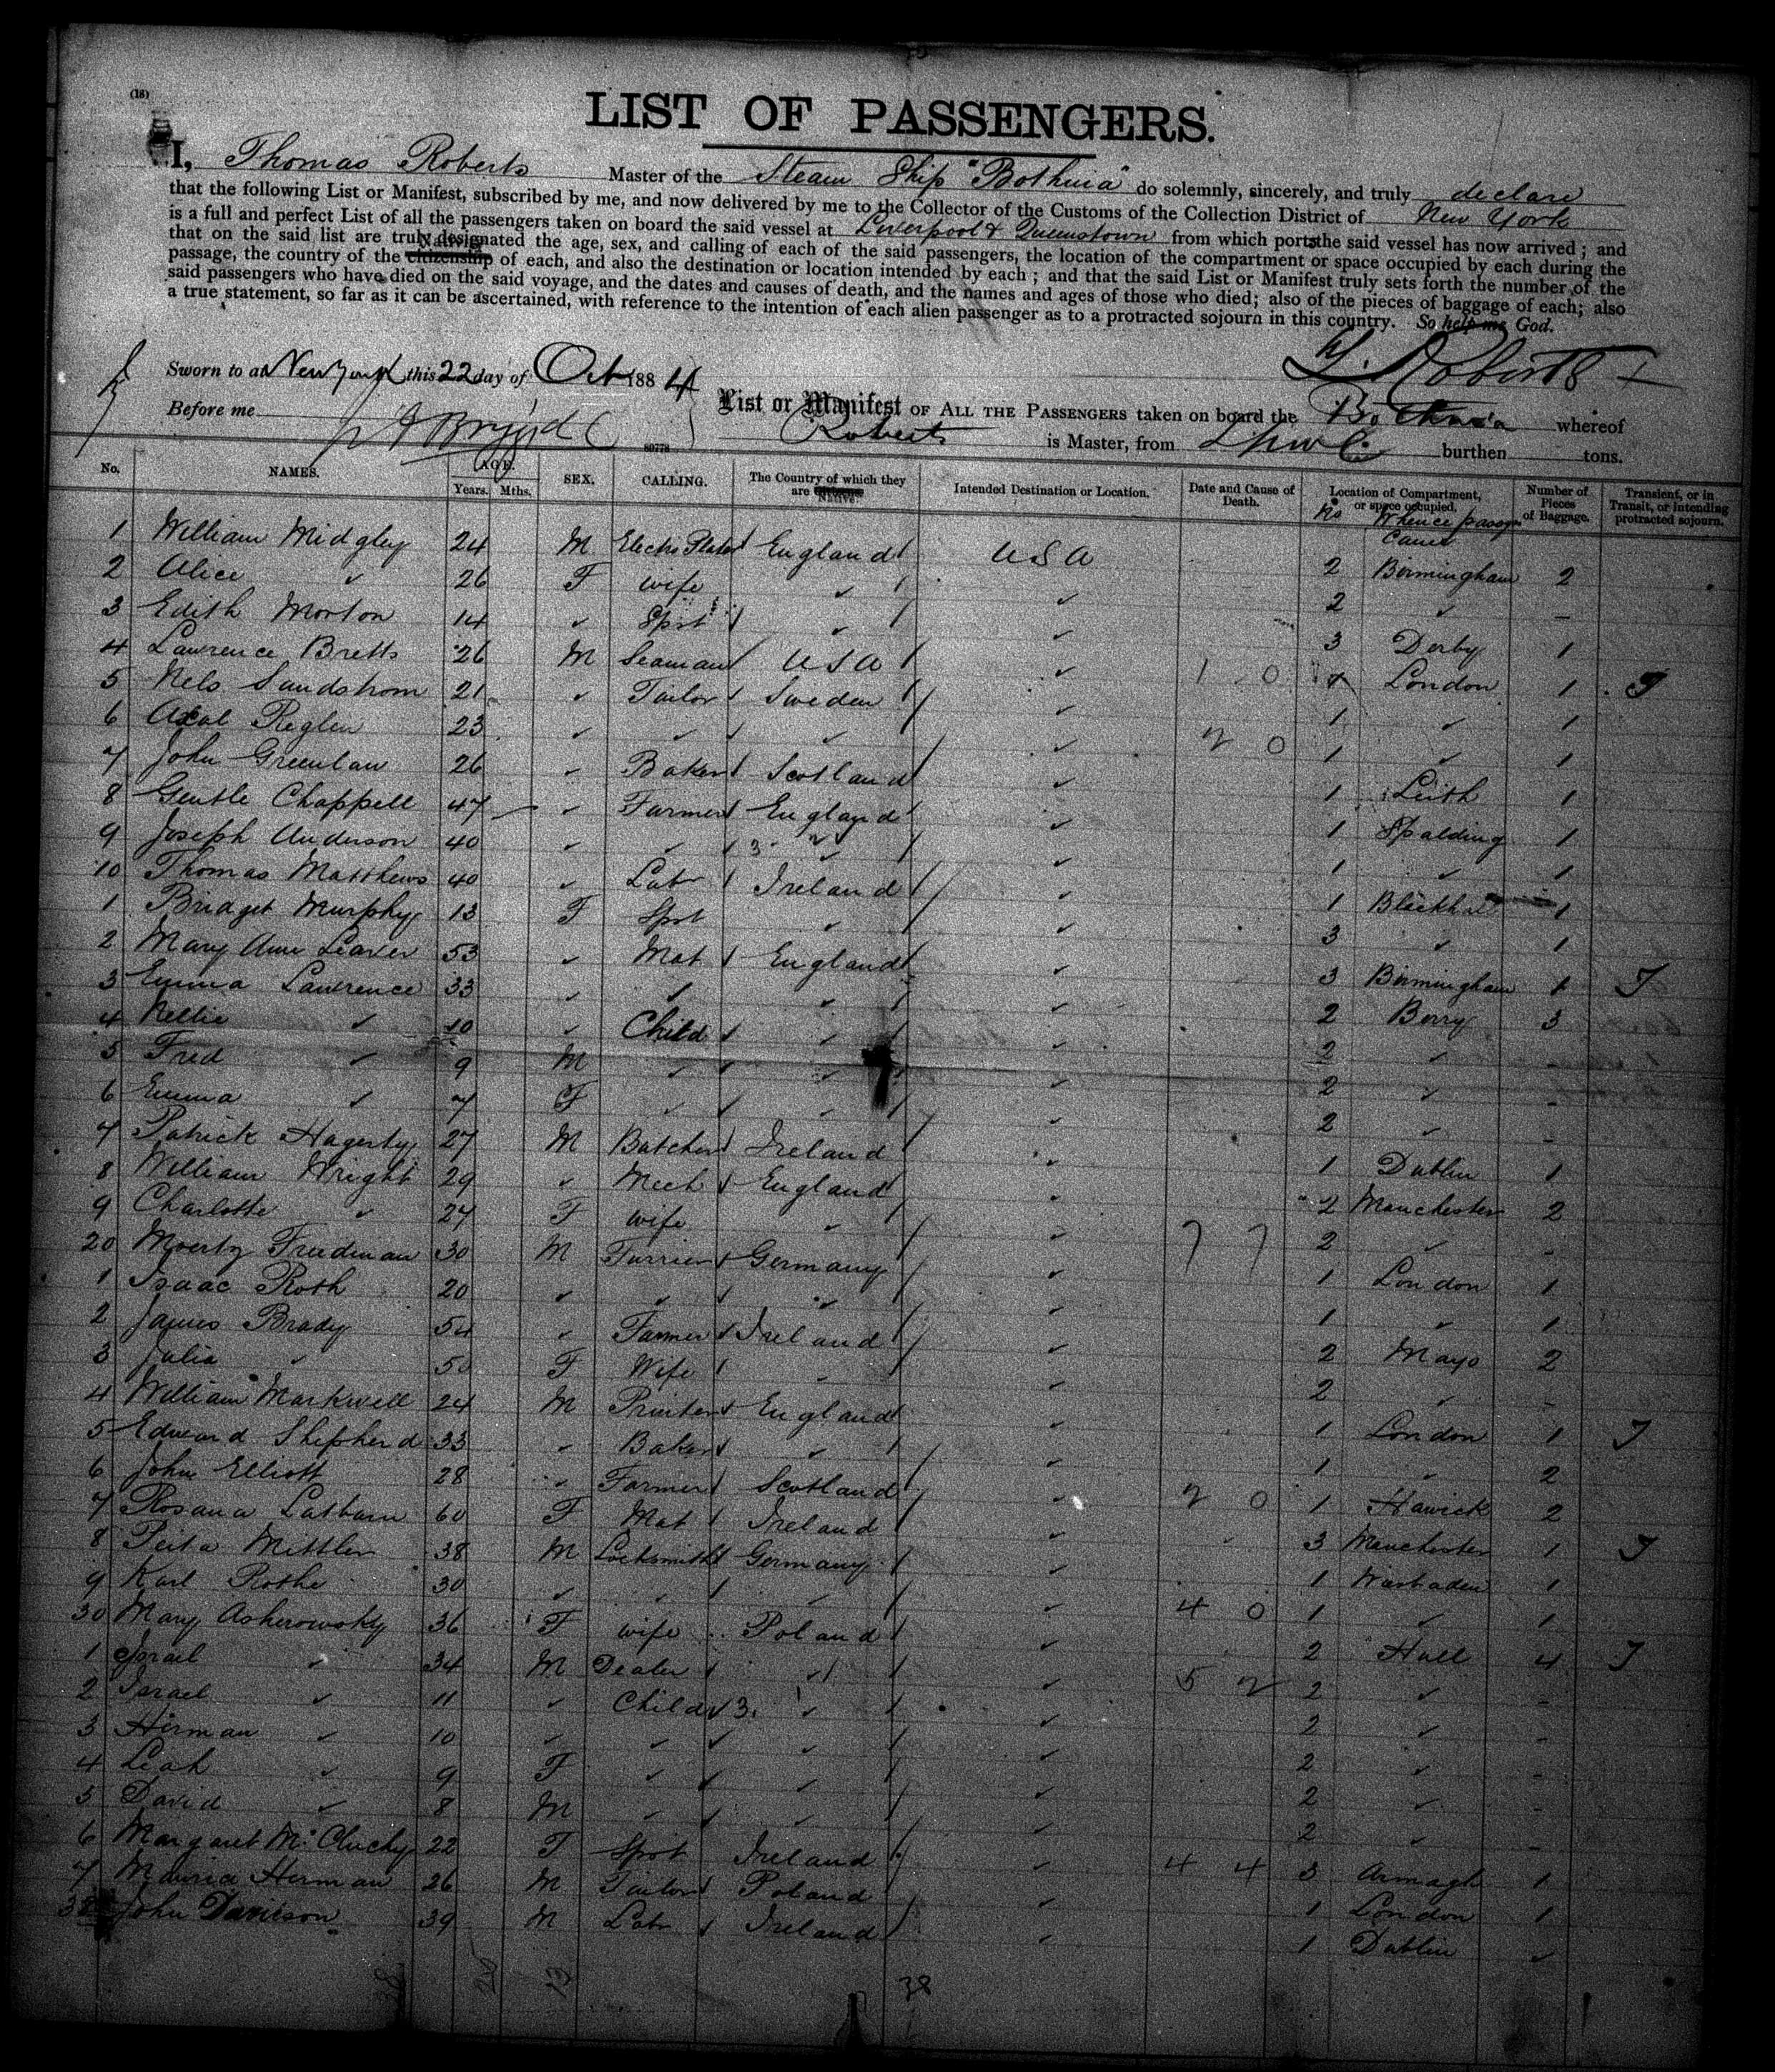 (18)
LIST OF PASSENGERS.
I, Thomas Roberts Master of the Steam Ship "Bothnia" do solemnly, sincerely, and truly declare
that the following List or Manifest, subscribed by me, and now delivered by me to the Collector of the Customs of the Collection District of New York
is a full and perfect List of all the passengers taken on board the said vessel at Liverpool & Queenstown from which ports the said vessel has now arrived; and
that on the said list are truly designated the age, sex, and calling of each of the said passengers, the location of the compartment or space occupied by each during the
passage, the country of the citizenship Native of each, and also the destination or location intended by each; and that the said List or Manifest truly sets forth the number of the
said passengers who have died on the said voyage, and the dates and causes of death, and the names and ages of those who died; also of the pieces of baggage of each; also
a true statement, so far as it can be ascertained, with reference to the intention of each alien passenger as to a protracted sojourn in this country. So help me God.
Roberts
Sworn to at New York this 22 day of Oct 1884
List or Manifest OF ALL THE PASSENGERS taken on board the Bothnia whereof
Before me
Roberts is Master, from burthen tons.
80778
No. NAMES. AGE. Years. Mths. SEX. CALLING. The Country of which they are Native Intended Destination or Location. Date and Cause of Death. Location of Compartment, or space occupied. Number of Pieces of Baggage. Transient, or in Transit, or intending protracted sojourn.
No Whence passgr Came
1 William Midgley 24 M Electro Plater England USA 2 Birmingham 2
2 Alice ✓ 26 F wife ✓ ✓ 2 ✓ -
3 Edith Morton 14 ✓ Spst ✓ ✓ 3 Derby 1
4 Lawrence Bretts 26 M Seaman USA ✓ 1 0 London 1 T
5 Nels Sandstrom 21 ✓ Tailor Sweden ✓ 1 ✓ 1
6 Axal Reglen 23 ✓ ✓ ✓ ✓ 2 0 1 ✓ 1
7 John Greenlaw 26 ✓ Baker Scotland ✓ 1 Leith 1
8 Gentle Chappell 47 ✓ Farmer England ✓ 1 Spalding 1
9 Joseph Anderson 40 ✓ ✓ 3 ✓ ✓ 1 ✓ 1
10 Thomas Matthews 40 ✓ Labr Ireland ✓ 1 Blackhill 1
1 Bridget Murphy 13 F Spst ✓ ✓ 3 ✓ 1
2 Mary Ann Leaver 53 ✓ Mat England ✓ 3 Birmingham 1 T
3 Emma Lawrence 33 ✓ ✓ ✓ ✓ 2 Berry 3
4 Nellie ✓ 10 ✓ Child ✓ ✓ 2 ✓ -
5 Fred ✓ 9 M ✓ ✓ ✓ 2 ✓ -
6 Emma ✓ 7 F ✓ ✓ ✓ 2 ✓ -
7 Patrick Hagerty 27 M Butcher Ireland ✓ 1 Dublin 1
8 William Wright 29 ✓ Mech England ✓ 2 Manchester 2
9 Charlotte ✓ 27 F wife ✓ ✓ 7 7 2 ✓ -
20 Moertz Freedman 30 M Furrier Germany ✓ 1 London 1
1 Isaac Roth 20 ✓ ✓ ✓ ✓ 1 ✓ 1
2 James Brady 54 ✓ Farmer Ireland ✓ 2 Mayo 2
3 Julia ✓ 50 F Wife ✓ ✓ 2 ✓ -
4 William Markwell 24 M Printer England ✓ 1 London 1 T
5 Edward Shepherd 33 ✓ Baker ✓ ✓ 1 ✓ 2
6 John Elliott 28 ✓ Farmer Scotland ✓ 2 0 1 Hawick 2
7 Rosana Latham 60 F Mat Ireland ✓ 3 Manchester 1 T
8 Peita Mittler 38 M Locksmith Germany ✓ 1 Wiesbaden 1
9 Karl Rothe 30 ✓ ✓ ✓ ✓ 4 0 1 ✓ 1
30 Mary Asherowsky 36 F wife Poland ✓ 2 Hull 4 T
1 Israel ✓ 34 M Dealer ✓ ✓ 5 2 2 ✓ -
2 Israel ✓ 11 ✓ Child 3 ✓ ✓ 2 ✓ -
3 Herman ✓ 10 ✓ ✓ ✓ ✓ 2 ✓ -
4 Leah ✓ 9 F ✓ ✓ ✓ 2 ✓ -
5 David ✓ 8 M ✓ ✓ ✓ 2 ✓ -
6 Margaret McCluchy 22 F Spst Ireland ✓ 4 4 3 Armagh 1
7 Herman 26 M Tailor Poland ✓ 1 London 1
38 John Davieson 39 M Labr Ireland ✓ 1 Dublin ✓
38